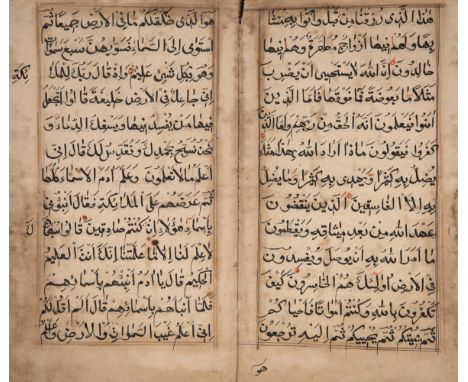 هذا الذي رزقنا من قبل واتوا به متشا
بها ولهم فيها ازواج مطهرة وهم فيها
خالدون ان الله لا يستحيى ان يضرب
مثلا ما بعوضة فما فوقها فاما الذين
امنوا فيعلمون انه الحق من ربهم واما الذين
كفروا فيقولون ماذا اراد الله بهذا مثلا
يضل به كثيرا ويهدى به كثيرا وما يضل
به الا الفاسقين الذين ينقضون
عهد الله من بعد ميثاقه ويقطعون
ما امر الله به ان يوصل ويفسدون
في الارض اولئك هم الخاسرون كيف
تكفرون بالله وكنتم امواتا فاحياكم
ثم يميتكم ثم يحييكم ثم اليه ترجعون
هو
هو الذي خلق لكم ما في الارض جميعا ثم
استوى الى السماء فسويهن سبع سموات
وهو بكل شئ عليم واذ قال ربك للملئكة
اني جاعل في الارض خليفة قالوا اتجعل
فيها من يفسد فيها ويسفك الدماء و
نحن نسبح بحمدك ونقدس لك قال اني
اعلم ما لا تعلمون وعلم ادم الاسماء كلها
ثم عرضهم على الملئكة فقال انبؤني
باسماء هؤلاء ان كنتم صادقين قالوا سبحانك
لا علم لنا الا ما علمتنا انك انت العليم
الحكيم قال يا ادم انبئهم باسمائهم
فلما انباهم باسمائهم قال الم اقل لكم
اني اعلم غيب السموات والارض واعلم